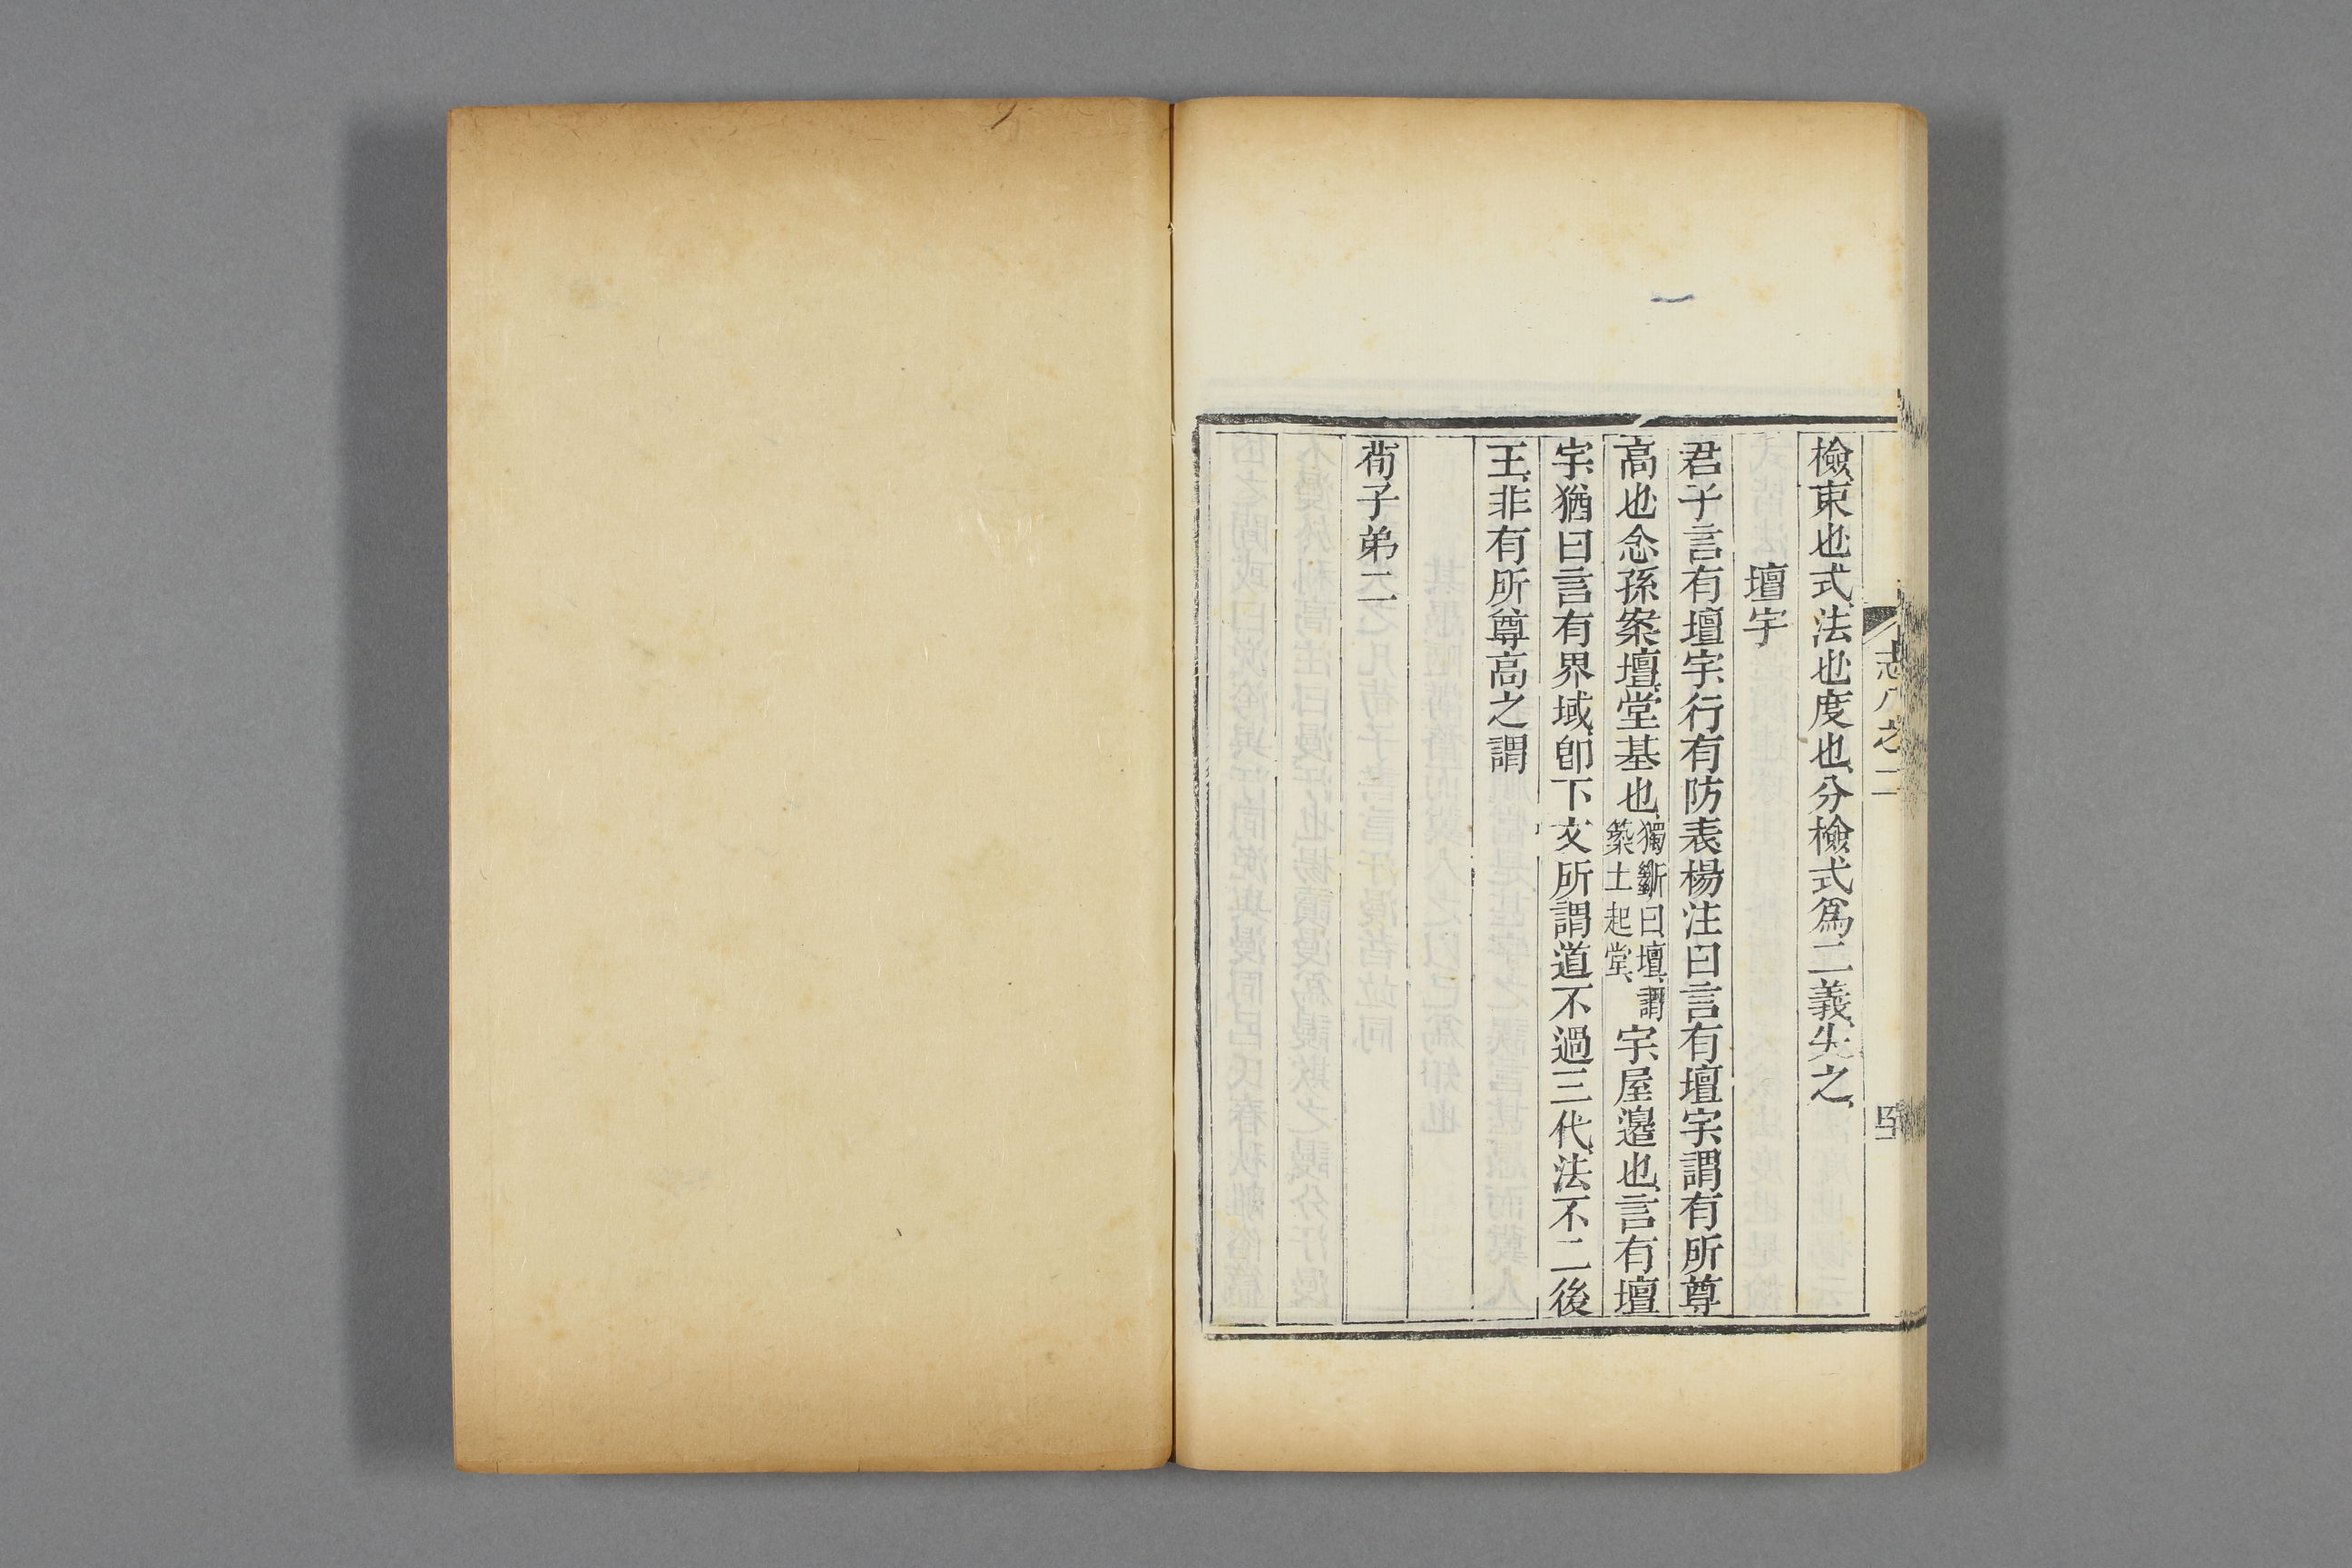 檢、束也、式、法也、度也、分檢式爲二義、失之、
壇宇
君子言有壇宇、行有防表、楊注曰言有壇宇、謂有所尊
高也、念孫案、壇、堂基也、獨斷曰壇、謂築土起堂、宇、屋邊也、言有壇
宇、猶曰言有界域、卽下文所謂道不過三代、法不二後
王、非有所尊高之謂
荀子弟二
志八之二